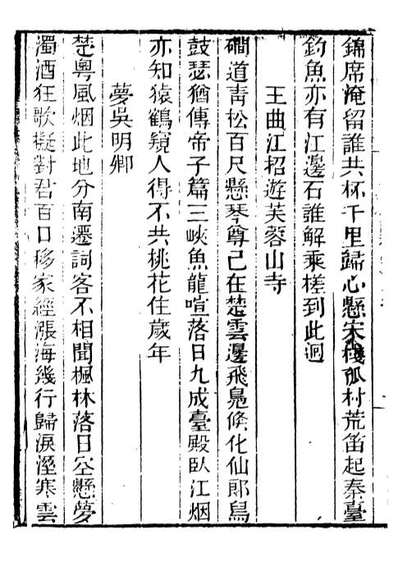 錦席淹留誰共杯千里歸心懸宋棧孤村荒笛起秦臺
釣魚亦有江邊石誰解乘槎到此迴
王曲江招遊芙蓉山寺
磵道靑松百尺懸琴尊已在楚雲邊飛鳬倏化仙郎舄
鼓瑟猶傳帝子篇三峽魚龍喧落日九成臺殿臥江烟
亦知猿鶴窺人得不共桃花住歲年
夢吳明卿
楚粵風烟此地分南遷詞客不相聞楓林落日空懸夢
濁酒狂歌擬對君百口移家經漲海幾行歸淚溼寒雲